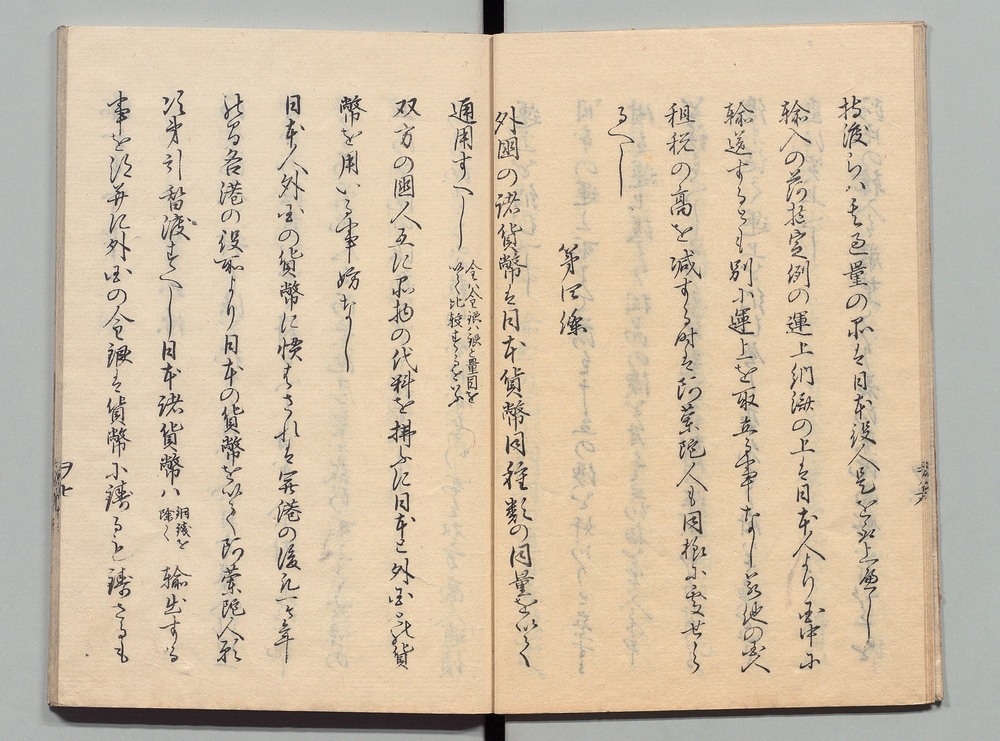 持渡らハ其過量の品は日本役人是を取上遍し
輸入の荷物定例の運上納濟の上は日本人より国中に
輸送するとも別に運上を取立る事なし若他の国人
租税の高を減する時は阿蘭陀人も同様に受せら
るへし
第四條
外國の諸貨幣は日本貨幣同種類の同量を以て
通用すへし
金ハ金銀ハ銀と量目を
以て比較するをいふ
双方の國人互に品物の代料を拂ふに日本と外国との貨
幣を用いる事妨なし
日本人外国の貨幣に慣はされは開港の後凡一ケ年
の間各港の役所より日本の貨幣を以て阿蘭陀人願
次第引替渡すへし日本諸貨幣ハ
銅錢を
除く
輸出する
事を得并に外国の金銀は貨幣に鑄るも鑄さるも